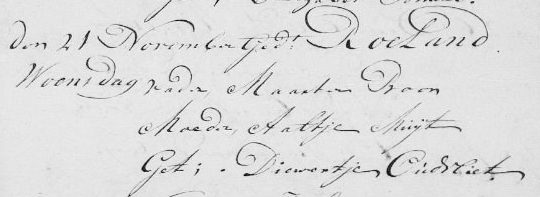 den 21 November gedt. Roeland.
Woensdag vader Maarten Proon
Moeder, Aaltje Muijt
Get; . Diewertje Oudvliet.